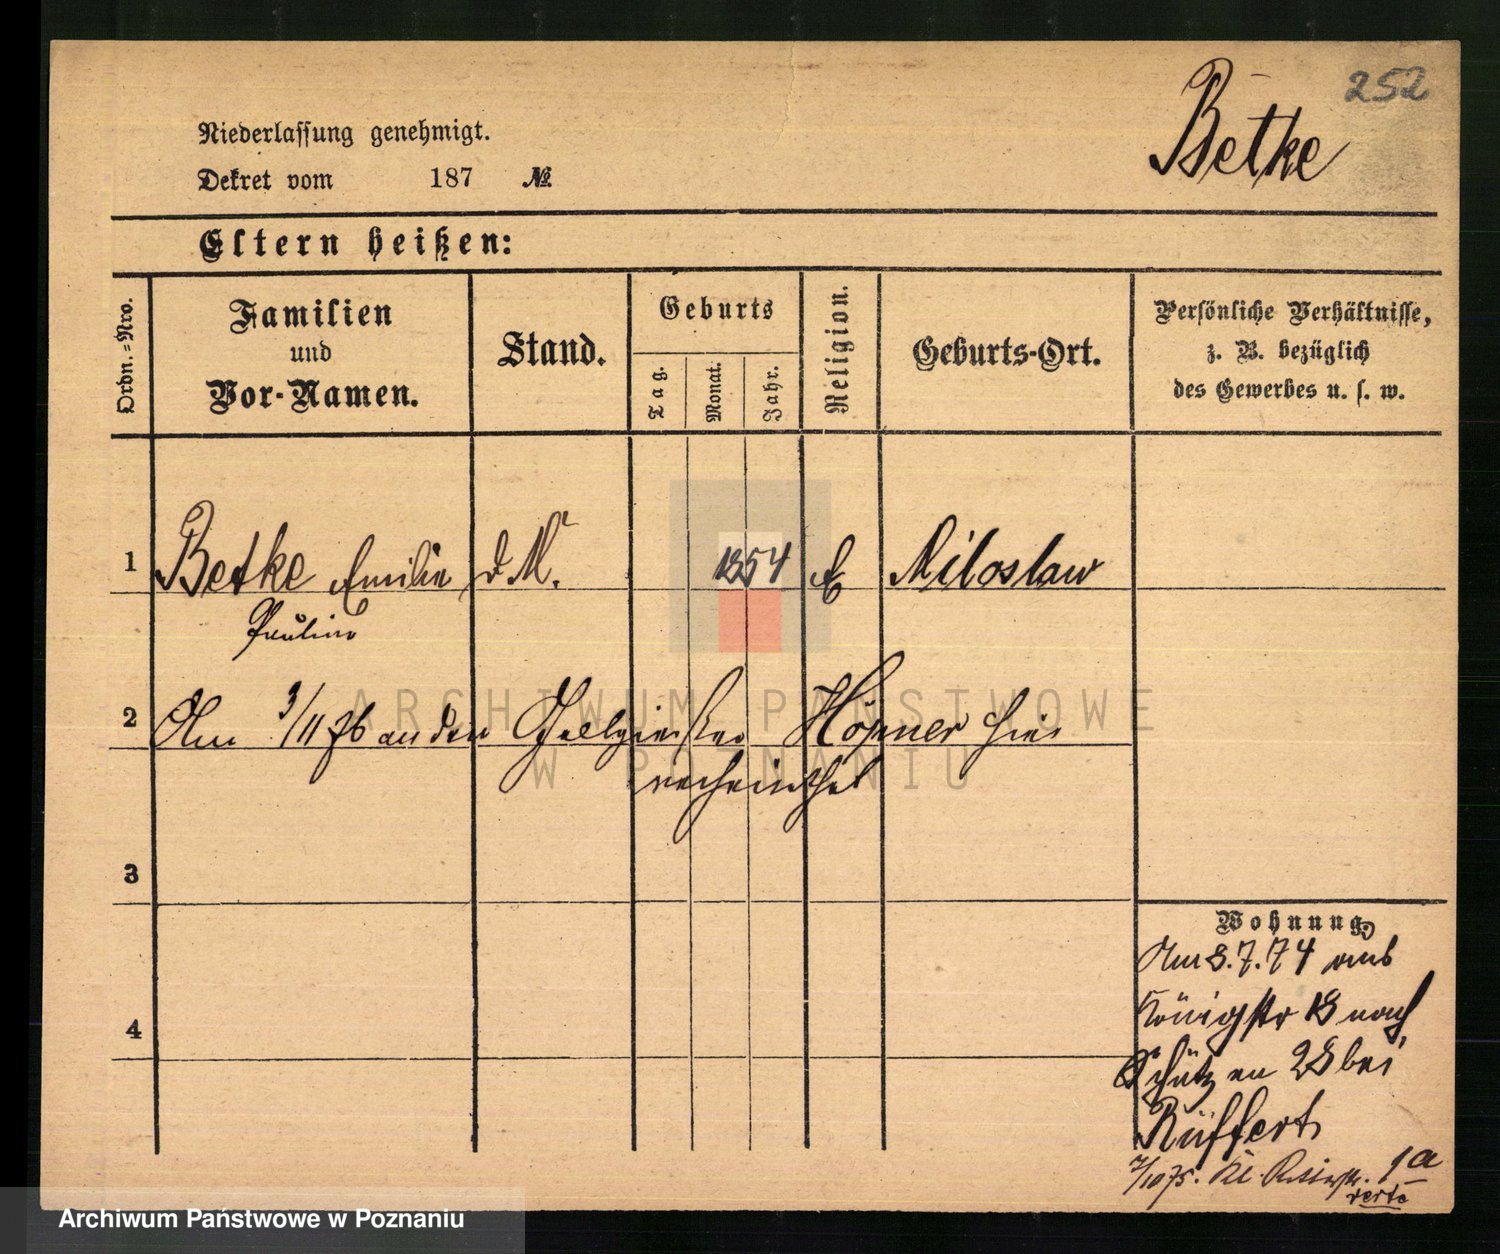 252
Betke
Niederlassung genehmigt.
Dekret vom 187 №
Eltern heißen:
Ordn.-Nro.
Familien
und
Vor-Namen.
Stand.
Geburts
Tag.
Monat.
Jahr.
Religion.
Geburts-Ort.
Persönliche Verhältnisse,
z. B. bezüglich
des Gewerbes u. s. w.
1 Betke Emilie d M. 1854 E Miloslaw
Pauline
2 Am 3/11 76 an den Höpner hier
verheirathet
3
4
Wohnung
Am 8.7.74 von
Königstr 18 nach
Schützen 28 bei
Rüffert
7/10 75. Kl. Ritterstr. 1a
verte
ARCHIWUM PAŃSTWOWE
W POZNANIU
Archiwum Państwowe w Poznaniu